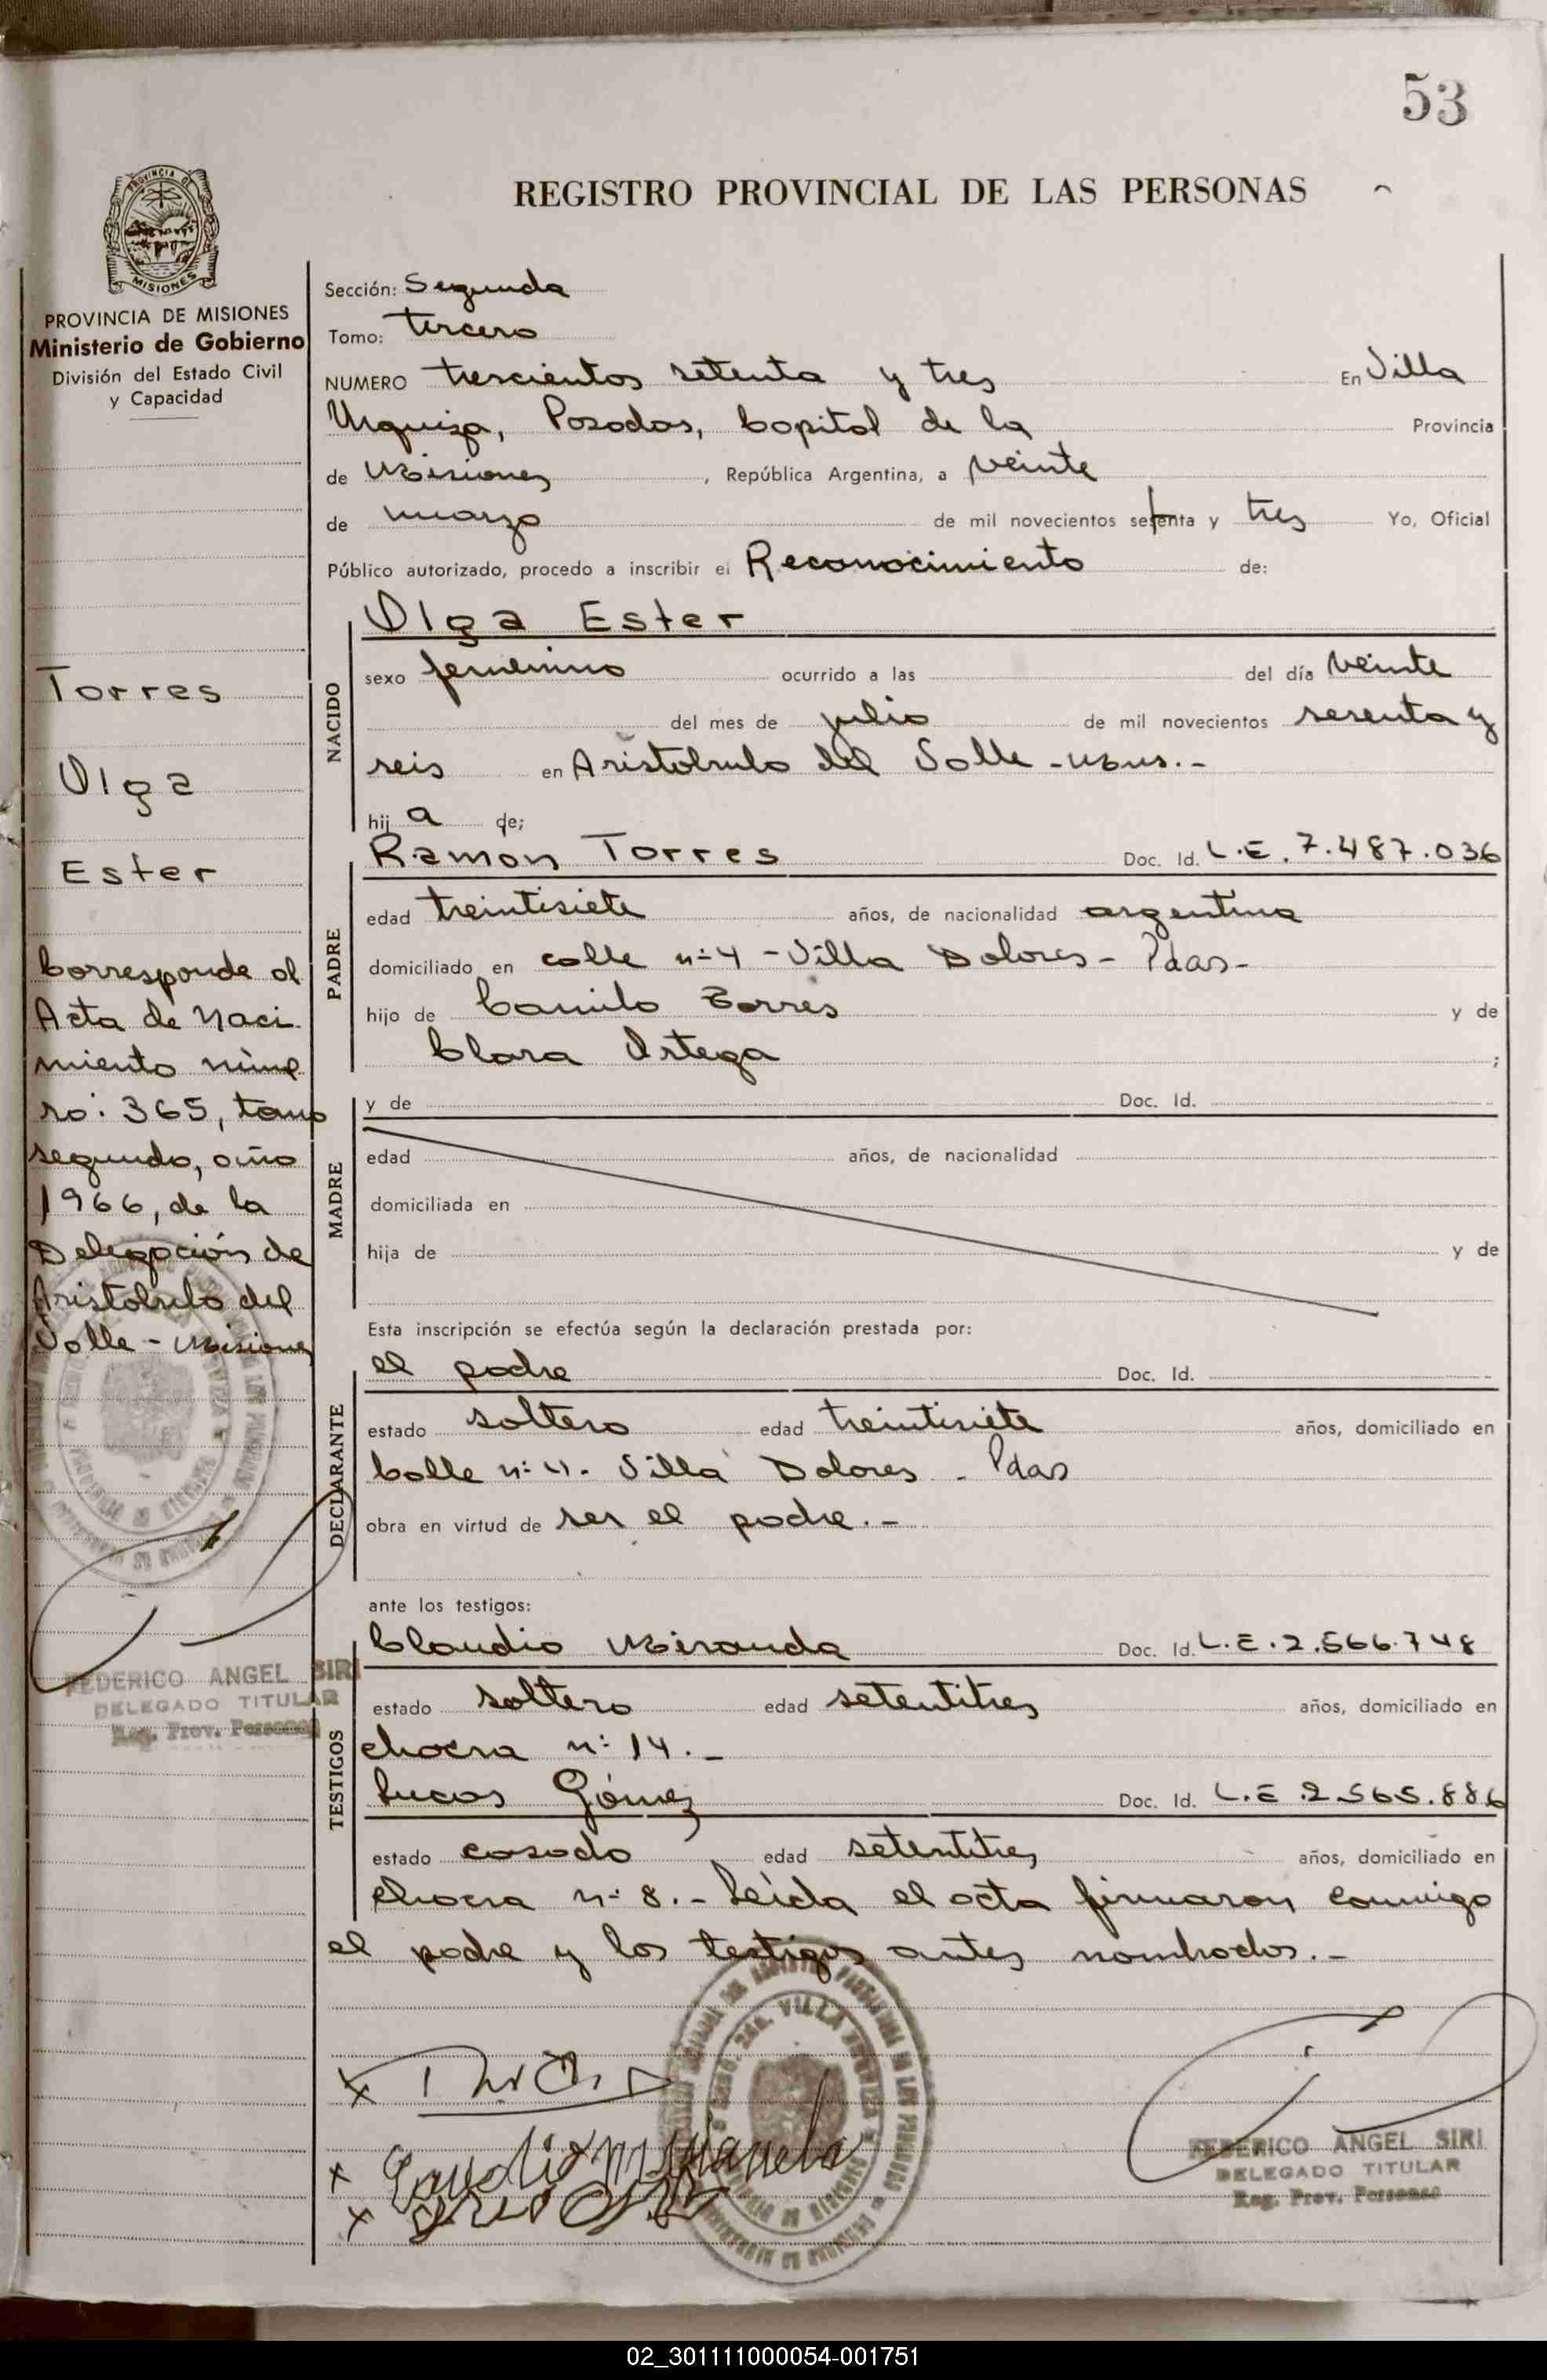 53
REGISTRO PROVINCIAL DE LAS PERSONAS
PROVINCIA DE
MISIONES
PROVINCIA DE MISIONES
Ministerio de Gobierno
División del Estado Civil
y Capacidad
Torres
Olga
Ester
Corresponde al
Acta de Naci-
miento núme
ro: 365, tomo
segundo, año
1966, de la
Delegación de
Aristobulo del
Valle - Misiones
FEDERICO ANGEL SIRI
DELEGADO TITULAR
Reg. Prov. Personas
Sección: Segunda
Tomo: tercero
NUMERO trescientos setenta y tres En Villa
Urquiza, Posadas, Capital de la Provincia
de Misiones, República Argentina, a veinte
de marzo de mil novecientos setenta y tres Yo, Oficial
Público autorizado, procedo a inscribir el Reconocimiento de:
NACIDO
Olga Ester
sexo femenino ocurrido a las del día veinte
del mes de julio de mil novecientos sesenta y
seis en Aristobulo del Valle - Mnes.-
hij a de;
PADRE
Ramon Torres Doc. Id. L.E. 7.487.036
edad treintisiete años, de nacionalidad argentina
domiciliado en calle n:4 - Villa Dolores - Pdas-
hijo de Camilo Torres y de
Clara Ortega ;
MADRE
y de Doc. Id.
edad años, de nacionalidad
domiciliada en
hija de y de
Esta inscripción se efectúa según la declaración prestada por:
DECLARANTE
el padre Doc. Id.
estado soltero edad treintisiete años, domiciliado en
Calle n:4. Villa Dolores - Pdas
obra en virtud de ser el padre.-
ante los testigos:
TESTIGOS
Claudio Miranda Doc. Id. L.E. 2.566.748
estado soltero edad setentitres años, domiciliado en
chacra n: 14.-
Lucas Gómez Doc. Id. L.E 2.565.886
estado casado edad setentitres años, domiciliado en
chacra n: 8.- Leída el acta firmaron conmigo
el padre y los testigos antes nombrados.-
VILLA URQUIZA
FEDERICO ANGEL SIRI
DELEGADO TITULAR
Reg. Prov. Personas
02_301111000054-001751